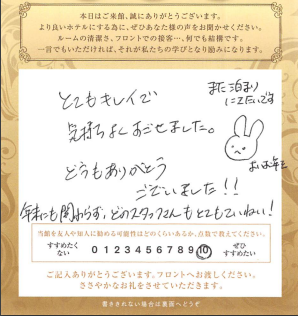 本日はご来館、誠にありがとうございます。
より良いホテルにする為に、ぜひあなた様の声をお聞かせください。
ルームの清潔さ、フロントでの接客…、何でも結構です。
一言でもいただければ、それが私たちの学びとなり励みになります。
とてもキレイで
気持ちよくすごせました。
どうもありがとう
ございました!!
また泊まり
にきたいです
よいお年を
年末にも関わらず、どのスタッフさんもとてもていねい!
当館を友人や知人に勧める可能性はどのくらいあるか、点数で教えてください。
すすめたくない 0 1 2 3 4 5 6 7 8 9 10 ぜひすすめたい
ご記入ありがとうございます。フロントへお渡しください。
ささやかなお礼をさせていただきます。
書ききれない場合は裏面へどうぞ